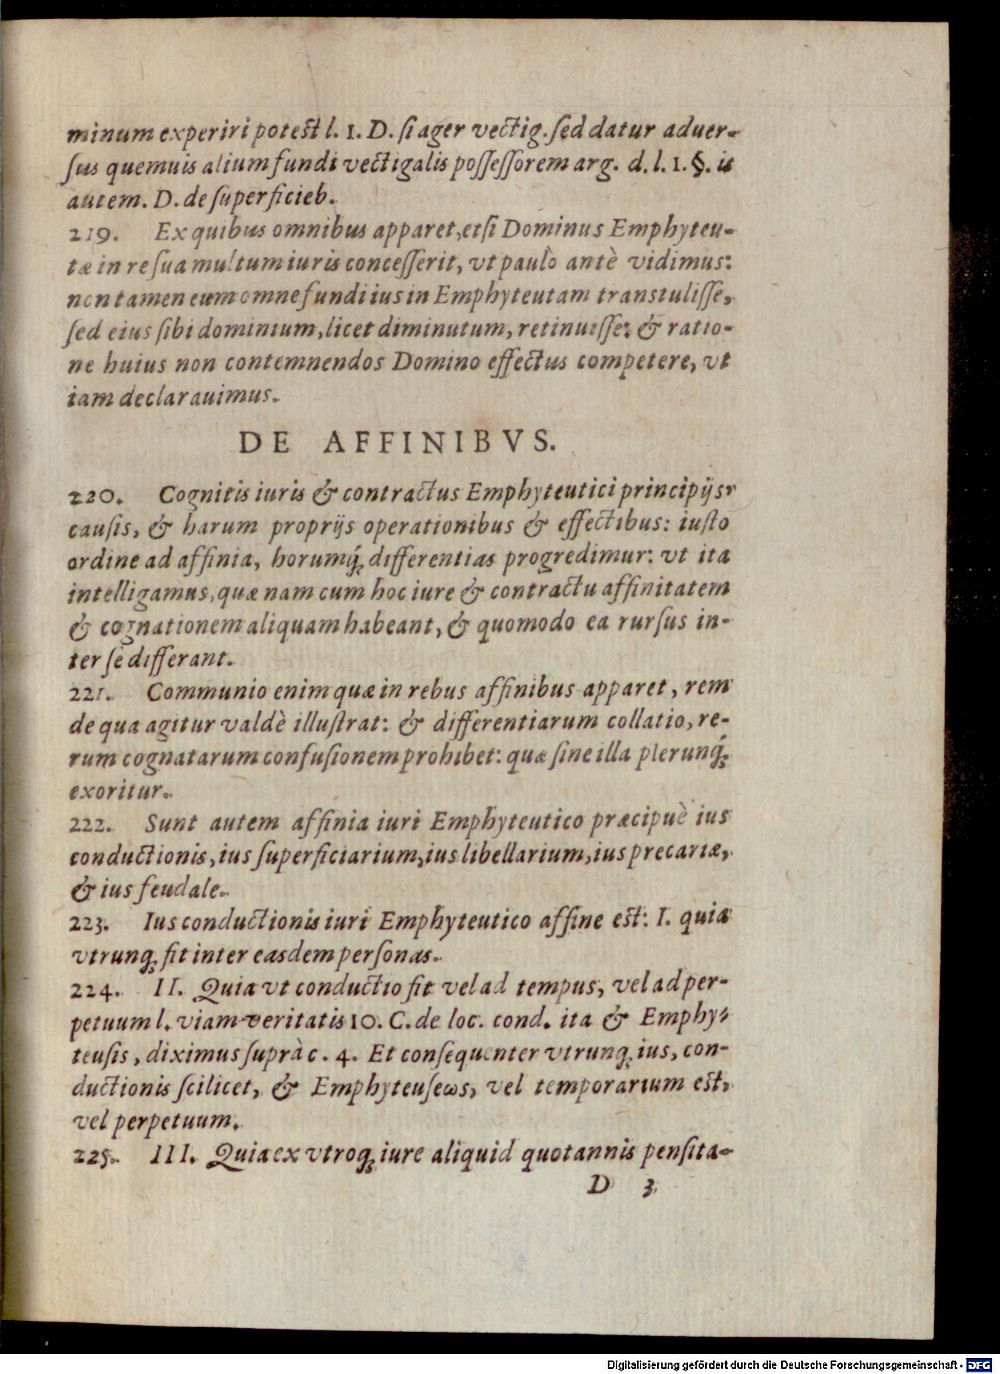 minum experiri potest l. 1. D. si ager vectig. sed datur aduer-
sus quemuis alium fundi vectigalis possessorem arg. d. l. 1. §. is
autem. D. de superficieb.
219. Ex quibus omnibus apparet, etsi Dominus Emphyteu-
tæ in re sua multum iuris concesserit, vt paulò antè vidimus:
non tamen eum omne fundi ius in Emphyteutam transtulisse,
sed eius sibi dominium, licet diminutum, retinuisse: & ratio-
ne huius non contemnendos Domino effectus competere, vt
iam declarauimus.
DE AFFINIBVS.
220. Cognitis iuris & contractus Emphyteutici principijs,
causis, & harum proprijs operationibus & effectibus: iusto
ordine ad affinia, horumq́; differentias progredimur: vt ita
intelligamus, quæ nam cum hoc iure & contractu affinitatem
& cognationem aliquam habeant, & quomodo ea rursus in-
ter se differant.
221. Communio enim quæ in rebus affinibus apparet, rem
de qua agitur valdè illustrat: & differentiarum collatio, re-
rum cognatarum confusionem prohibet: quæ sine illa plerunq́;
exoritur.
222. Sunt autem affinia iuri Emphyteutico præcipuè ius
conductionis, ius superficiarium, ius libellarium, ius precariæ,
& ius feudale.
223. Ius conductionis iuri Emphyteutico affine est: I. quia
vtrunq; fit inter easdem personas.
224. II. Quia vt conductio fit vel ad tempus, vel ad per-
petuum l. viam veritatis 10. C. de loc. cond. ita & Emphy-
teusis, diximus suprà c. 4. Et consequenter vtrunq; ius, con-
ductionis scilicet, & Emphyteuseωs, vel temporarium est,
vel perpetuum.
225. III. Quia ex vtroq; iure aliquid quotannis pensita-
D 3
Digitalisierung gefördert durch die Deutsche Forschungsgemeinschaft - DFG